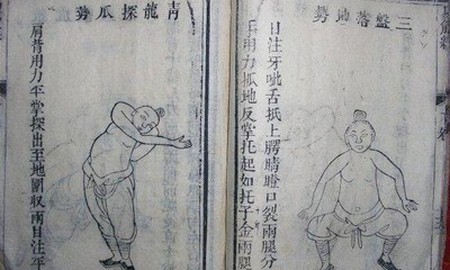 三盤落地勢
目注牙呲舌抵上腭睛瞪口裂兩腿分
手用力抓地反掌托起如托子金兩腿
青龍探爪勢
肩背用力平掌探出至地圍收兩目注平